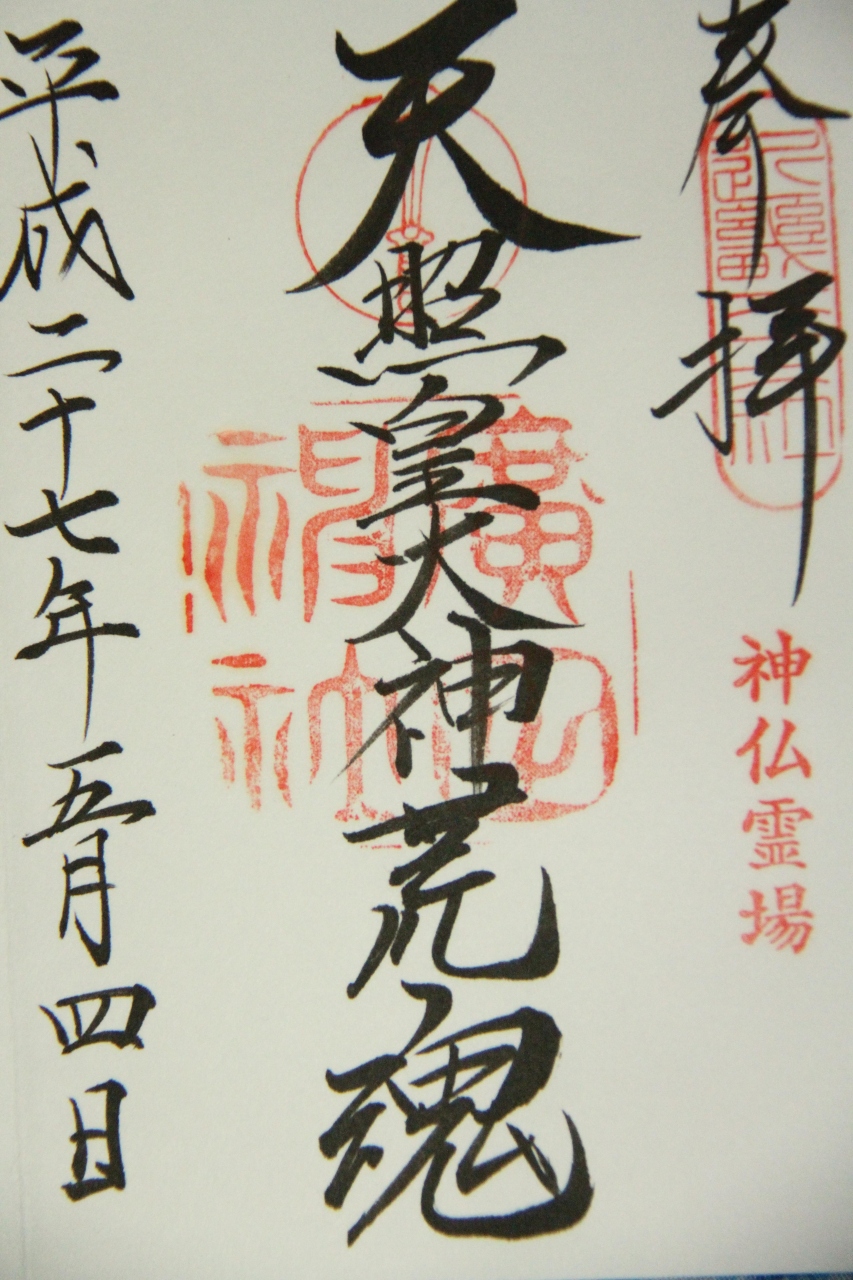 奉拝
神仏霊場
天照皇大神荒魂
廣田
神社
平成二十七年五月四日